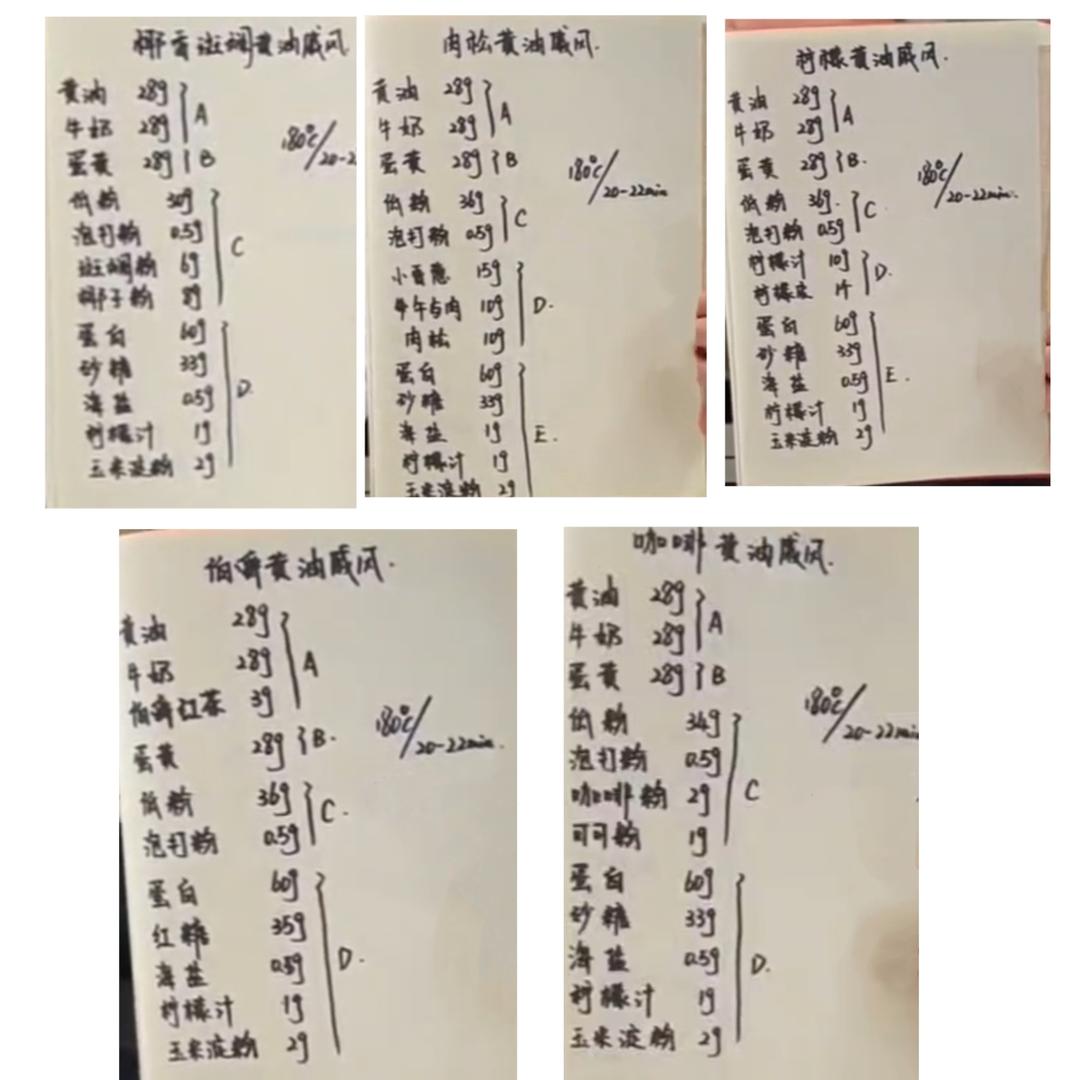 椰香斑斓黄油戚风
黄油 28g
牛奶 28g
A
蛋黄 28g B
180℃/20-2
低粉 30g
泡打粉 0.5g
斑斓粉 6g
椰子粉 8g
C
蛋白 60g
砂糖 33g
海盐 0.5g
柠檬汁 1g
玉米淀粉 2g
D.
肉松黄油戚风.
黄油 28g
牛奶 28g
A
蛋黄 28g B
180℃/20-22min
低粉 36g
泡打粉 0.5g
C
小香葱 15g
10g
肉松 10g
D.
蛋白 60g
砂糖 33g
海盐 1g
柠檬汁 1g
玉米淀粉 2g
E.
柠檬黄油戚风.
黄油 28g
牛奶 28g
A
蛋黄 28g B.
180℃/20-22min.
低粉 36g.
泡打粉 0.5g
C.
柠檬汁 10g
柠檬皮 1个
D.
蛋白 60g
砂糖 33g
海盐 0.5g
柠檬汁 1g
玉米淀粉 2g
E.
伯爵黄油戚风.
黄油 28g
牛奶 28g
伯爵红茶 3g
A
蛋黄 28g B.
180℃/20-22min.
低粉 36g
泡打粉 0.5g
C.
蛋白 60g
红糖 35g
海盐 0.5g
柠檬汁 1g
玉米淀粉 2g
D.
咖啡黄油戚风.
黄油 28g
牛奶 28g
A
蛋黄 28g B
180℃/20-22min
低粉 34g
泡打粉 0.5g
咖啡粉 2g
可可粉 1g
C
蛋白 60g
砂糖 33g
海盐 0.5g
柠檬汁 1g
玉米淀粉 2g
D.